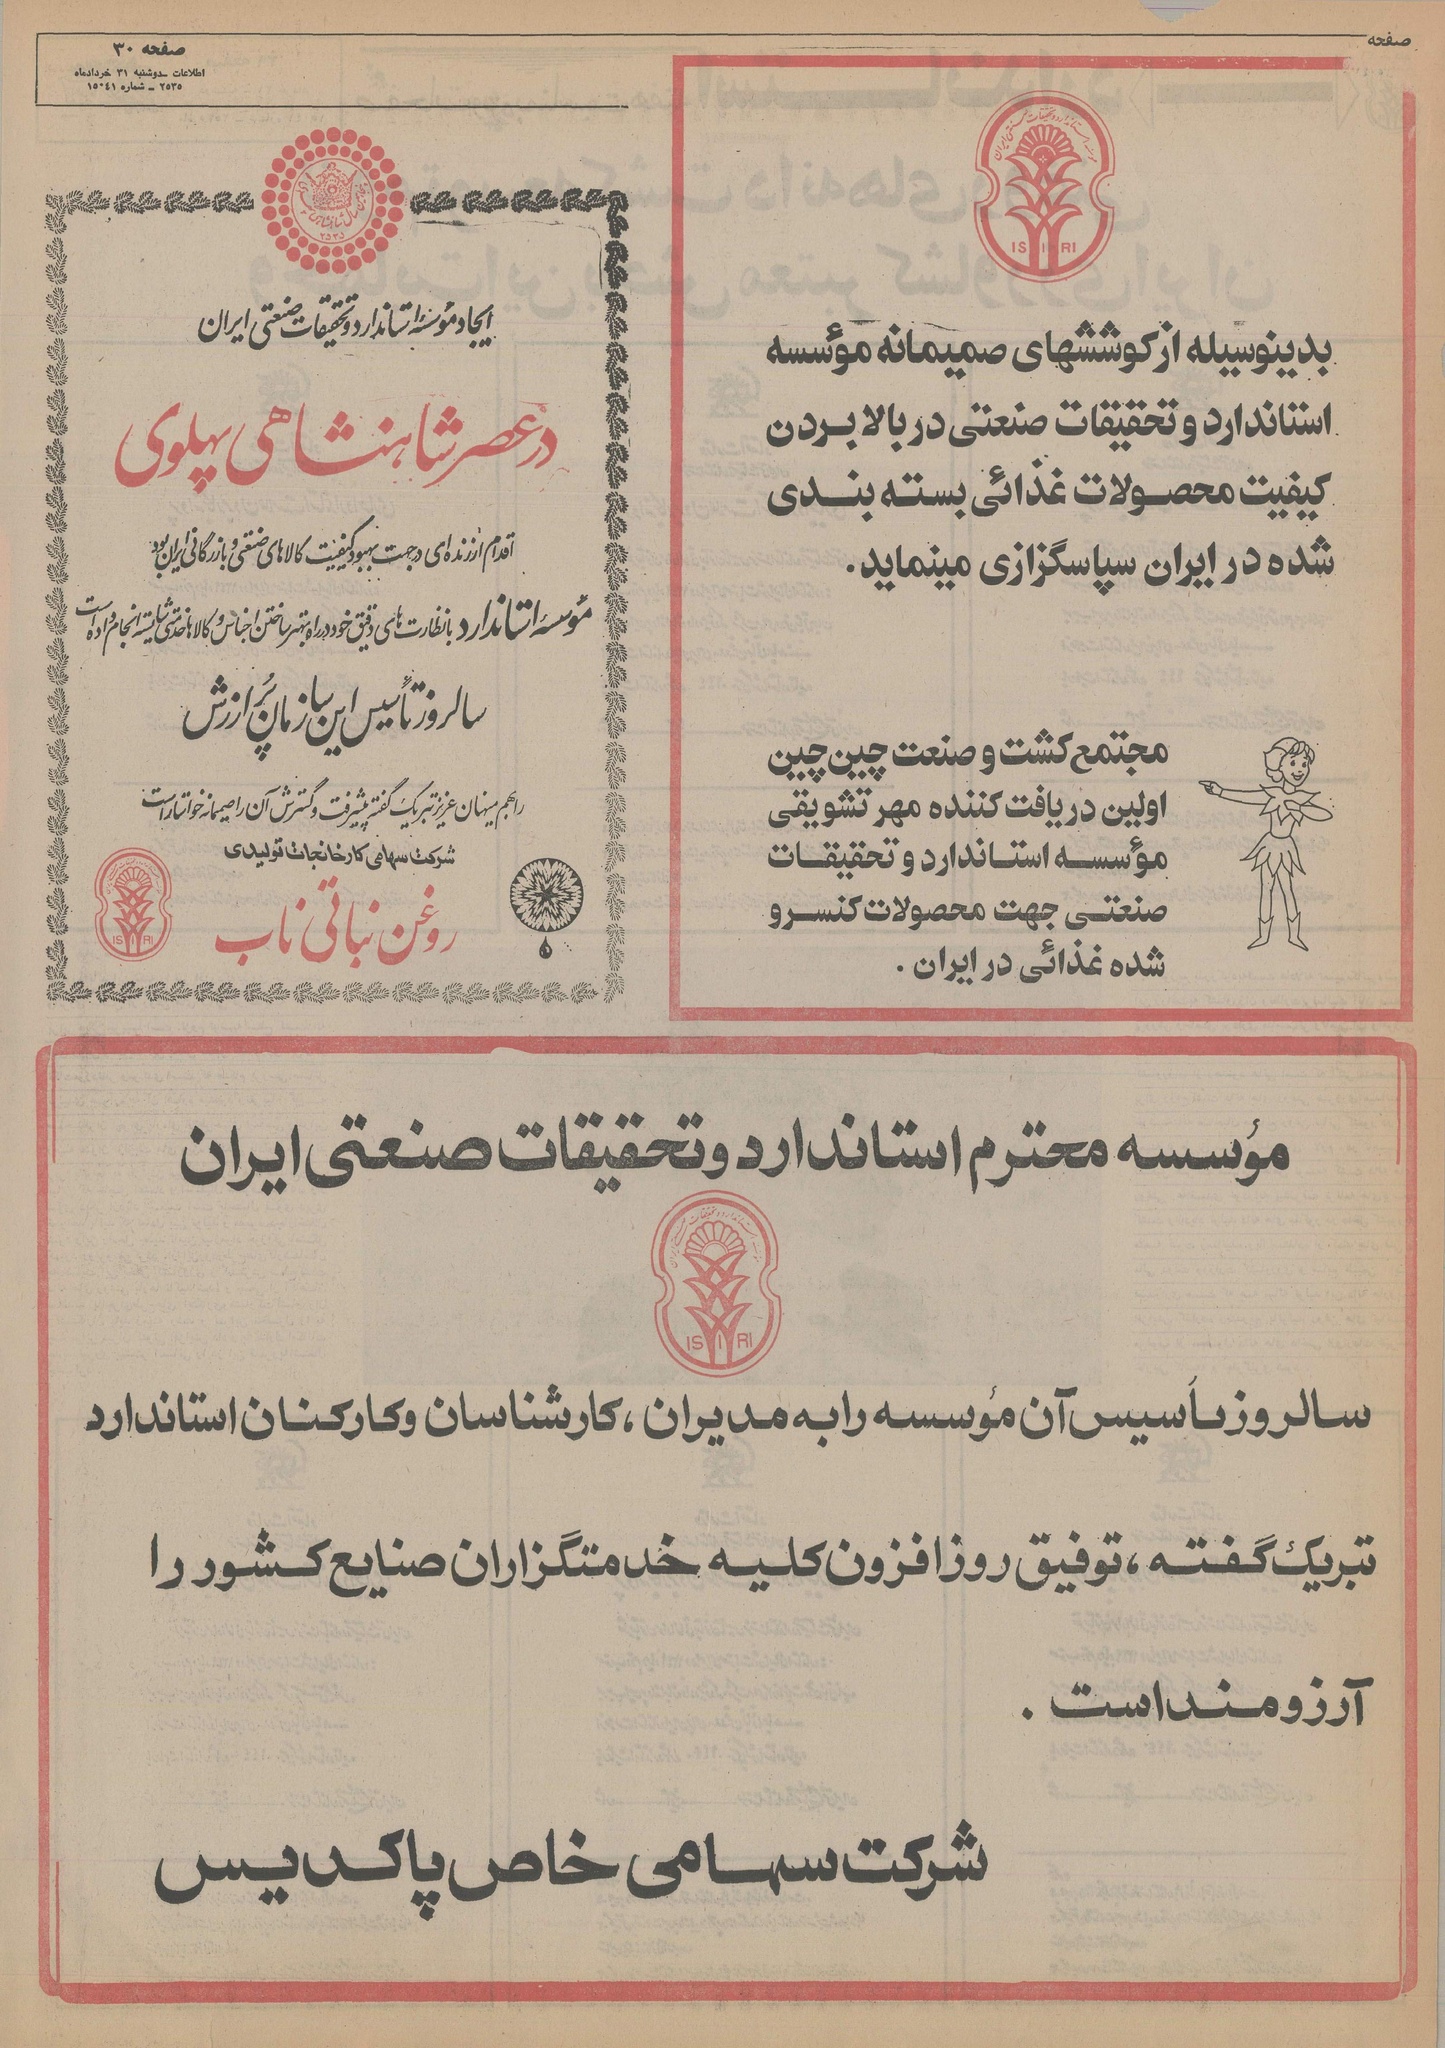 صفحه
صفحه ۳۰
اطلاعات ـ دوشنبه ۳۱ خردادماه
۲۵۳۵ ـ شماره ۱۵۰۴۱
ISIRI
بدینوسیله از کوششهای صمیمانه مؤسسه
استاندارد و تحقیقات صنعتی در بالا بردن
کیفیت محصولات غذائی بسته بندی
شده در ایران سپاسگزاری مینماید.
مجتمع کشت و صنعت چین چین
اولین دریافت کننده مهر تشویقی
مؤسسه استاندارد و تحقیقات
صنعتی جهت محصولات کنسرو
شده غذائی در ایران.
۲۵۳۵
ایجاد مؤسسه استاندارد و تحقیقات صنعتی ایران
در عصر شاهنشاهی پهلوی
اقدام ارزنده‌ای در جهت بهبود کیفیت کالاهای صنعتی و بازرگانی ایران بود
مؤسسه استاندارد با نظارت های دقیق خود در راه بهتر ساختن اجناس و کالاها خدمتی شایسته انجام داده است
سالروز تأسیس این سازمان پُر ارزش
را بهم میهنان عزیز تبریک گفته پیشرفت و گسترش آن را صمیمانه خواستار است
شرکت سهامی کارخانجات تولیدی
روغن نباتی ناب
ISIRI
مؤسسه محترم استاندارد و تحقیقات صنعتی ایران
ISIRI
سالروز تأسیس آن مؤسسه را به مدیران، کارشناسان و کارکنان استاندارد
تبریک گفته، توفیق روزافزون کلیه خدمتگزاران صنایع کشور را
آرزومند است.
شرکت سهامی خاص پاکدیس